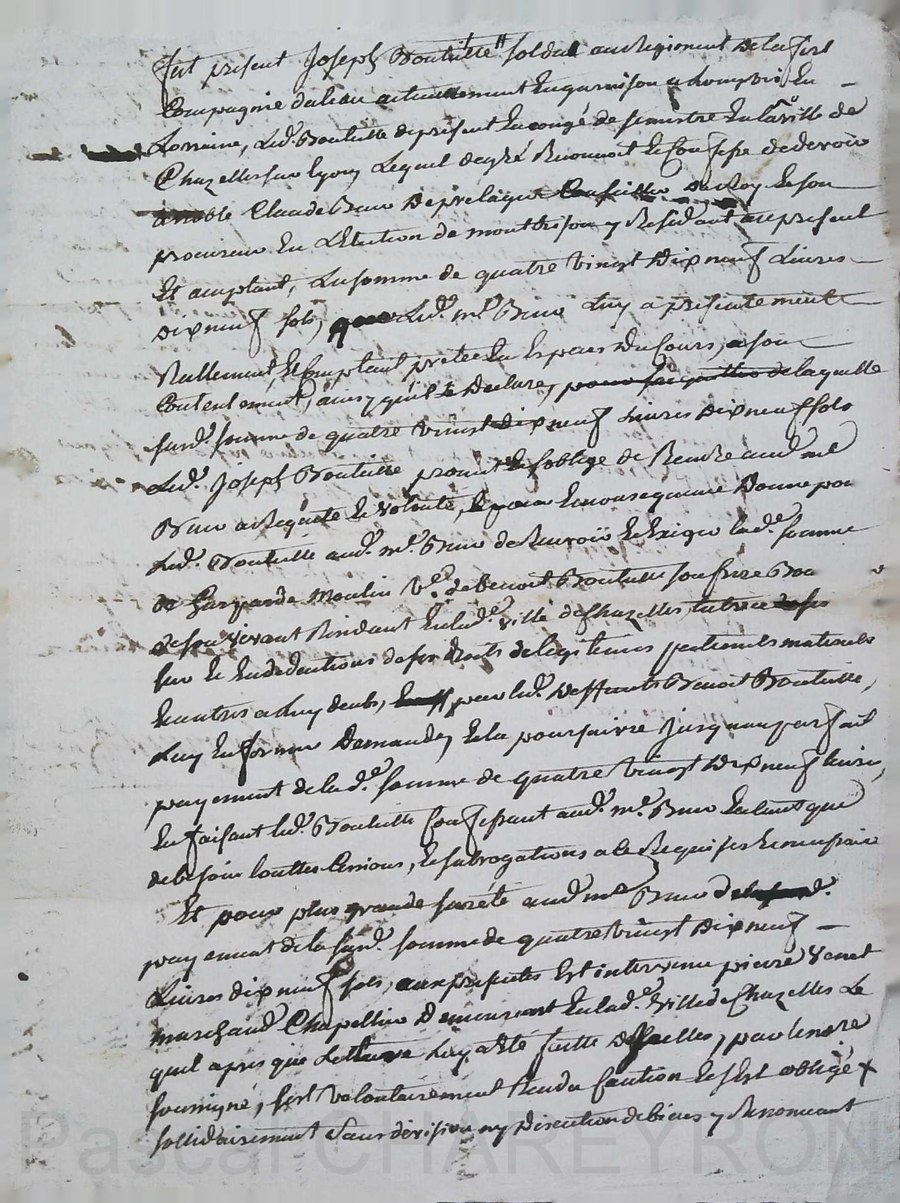 fut présent Joseph Bouteille soldat au Regiment de la fere
Compagnie daleau actuellement en garnison a en
Lorraine, led. Bouteille de présent en congé de semestre en la ville de
Chazelles sur Lyon Lequel de gré Reconnoit et Confesse debvoir
a noble Claude Brun Deprelaque Conseiller du Roy et son
procureur En LElection de montbrison y Residant au present
Et acceptant, La somme de quatre vingt Dixneuf Livres
Dixneuf sols, que led. mr. Brun Luy a présentement
Reellement Et Comptant prété En Especes Du Cours, a son
Contentement, ainsy qu'il le Declare, de laquelle
susd. somme de quatre vingt dixneuf Livres Dixneuf sols
Led. Joseph Bouteille promet Et soblige de Rendre aud. mr
Brun a Requete Et volonté, Et pour En donne pou
Led. Bouteille aud. mr. Brun de Et Exiger lad. somme
de Gasparde Moulin Ve. de Benoit Bouteille son frere Bou
de son vivant Residant En lad. ville de Chazelles
sur Et En deductions de ses droits de legitimes paternels maternels
Et autres a Luy deubs, par led. Deffunt Benoit Bouteille,
Luy En former Demande, Et la poursuivre jusqu'au parfait
payement de lad. somme de quatre vingt Dixneuf Livres,
En faisant led. Bouteille aud. mr. Brun En tant que
de besoin touttes Cessions, Et subrogations a ce Requises
Et pour plus grande sureté aud. mr Brun
payement de la susd. somme de quatre vingt Dixneuf
Livres dixneuf sols, aux presentes Est intervenu pierre Venet
marchand Chapellier Demeurant En lad. ville de Chazelles Le
quel apres que Lecture Luy a Eté faitte Dicelles, par le nore
soussigné, sest volontairement Rendu Caution Et sEst obligé +
sollidairement sans division ny Discution de biens y Renonceant
Pascal CHAREYRON